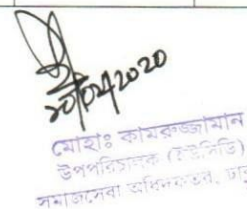 20/02/2020
মোহাঃ কামরুজ্জামান
উপপরিচালক (ইউসিডি)
সমাজসেবা অধিদফতর,